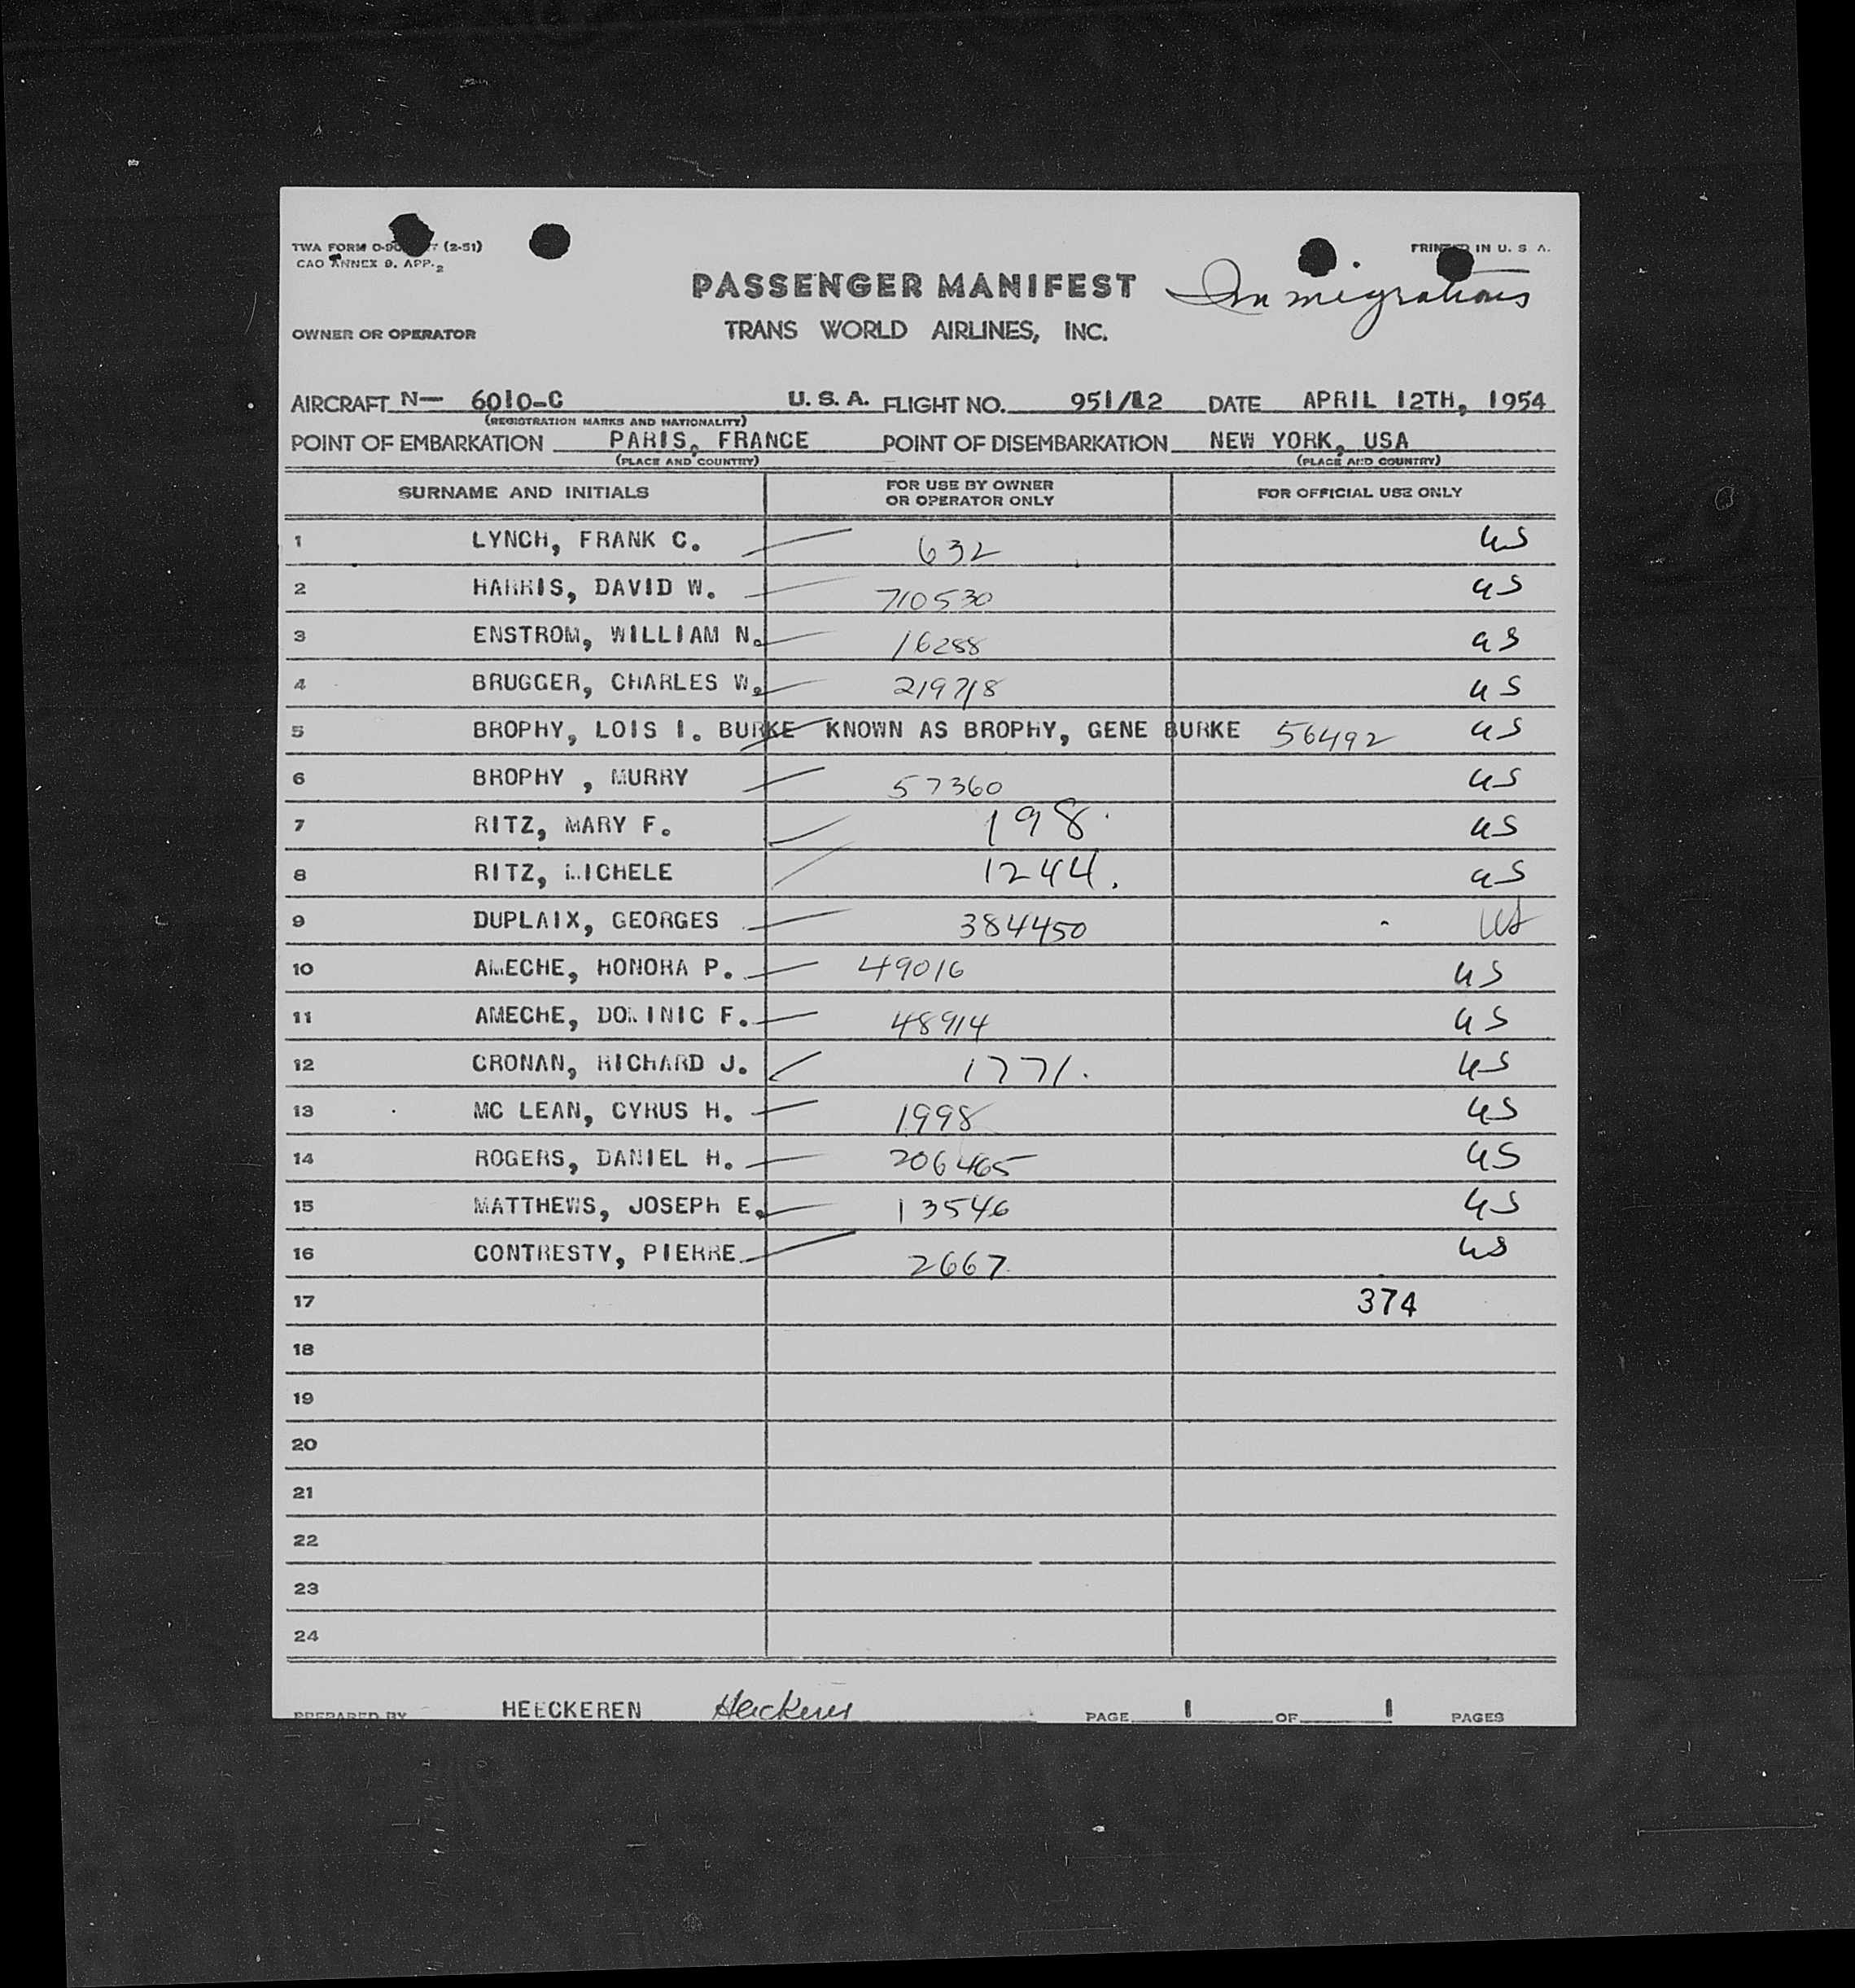 TWA FORM (2-51)
PRINTED IN U. S. A.
CAO ANNEX 9. APP. 2
PASSENGER MANIFEST
Immigrations
OWNER OR OPERATOR
TRANS WORLD AIRLINES, INC.
AIRCRAFT N— 6010-C U. S. A. FLIGHT NO. 951/12 DATE APRIL 12TH, 1954
(REGISTRATION MARKS AND NATIONALITY)
POINT OF EMBARKATION PARIS, FRANCE POINT OF DISEMBARKATION NEW YORK, USA
(PLACE AND COUNTRY) (PLACE AND COUNTRY)
SURNAME AND INITIALS FOR USE BY OWNER OR OPERATOR ONLY FOR OFFICIAL USE ONLY
1 LYNCH, FRANK C. 632 US
2 HARRIS, DAVID W. 710530 US
3 ENSTROM, WILLIAM N. 16288 US
4 BRUGGER, CHARLES W. 219718 US
5 BROPHY, LOIS I. BURKE KNOWN AS BROPHY, GENE BURKE 56492 US
6 BROPHY , MURRY 57360 US
7 RITZ, MARY F. 198. US
8 RITZ, MICHELE 1244. US
9 DUPLAIX, GEORGES 384450 US
10 AMECHE, HONORA P. 49016 US
11 AMECHE, DOMINIC F. 48914 US
12 CRONAN, RICHARD J. 1771. US
13 MC LEAN, CYRUS H. 1998 US
14 ROGERS, DANIEL H. 206465 US
15 MATTHEWS, JOSEPH E. 13546 US
16 CONTRESTY, PIERRE 2667 US
17 374
18
19
20
21
22
23
24
PREPARED BY HEECKEREN Heeckeren PAGE 1 OF 1 PAGES